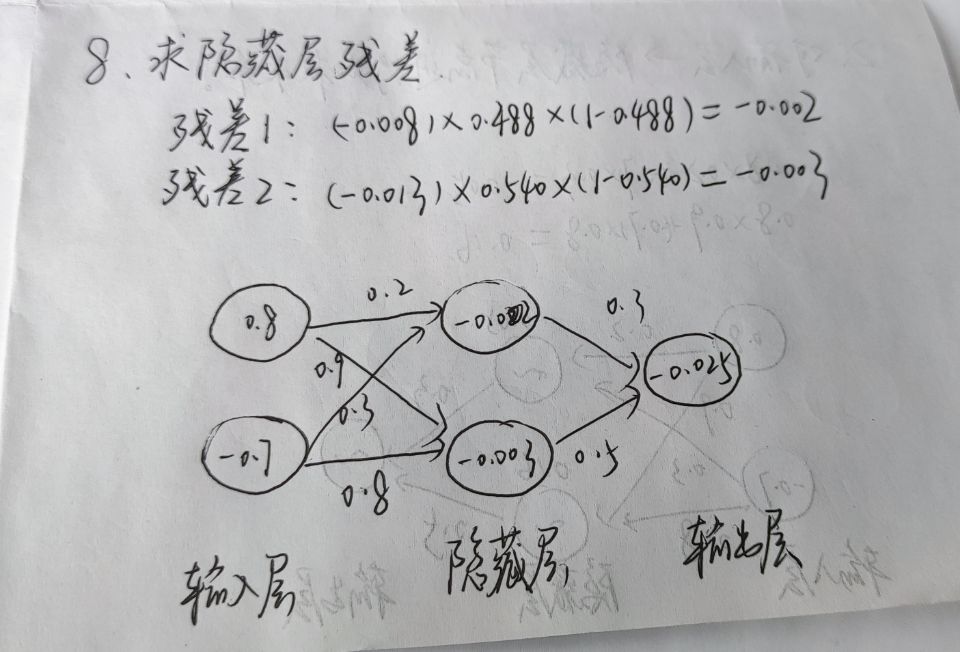 8、求隐藏层残差.
残差1: (-0.008)×0.488×(1-0.488)=-0.002
残差2: (-0.013)×0.540×(1-0.540)=-0.003
0.2
0.8
-0.002
0.3
0.9
-0.025
0.3
-0.7
-0.003
0.5
0.8
输入层
隐藏层
输出层